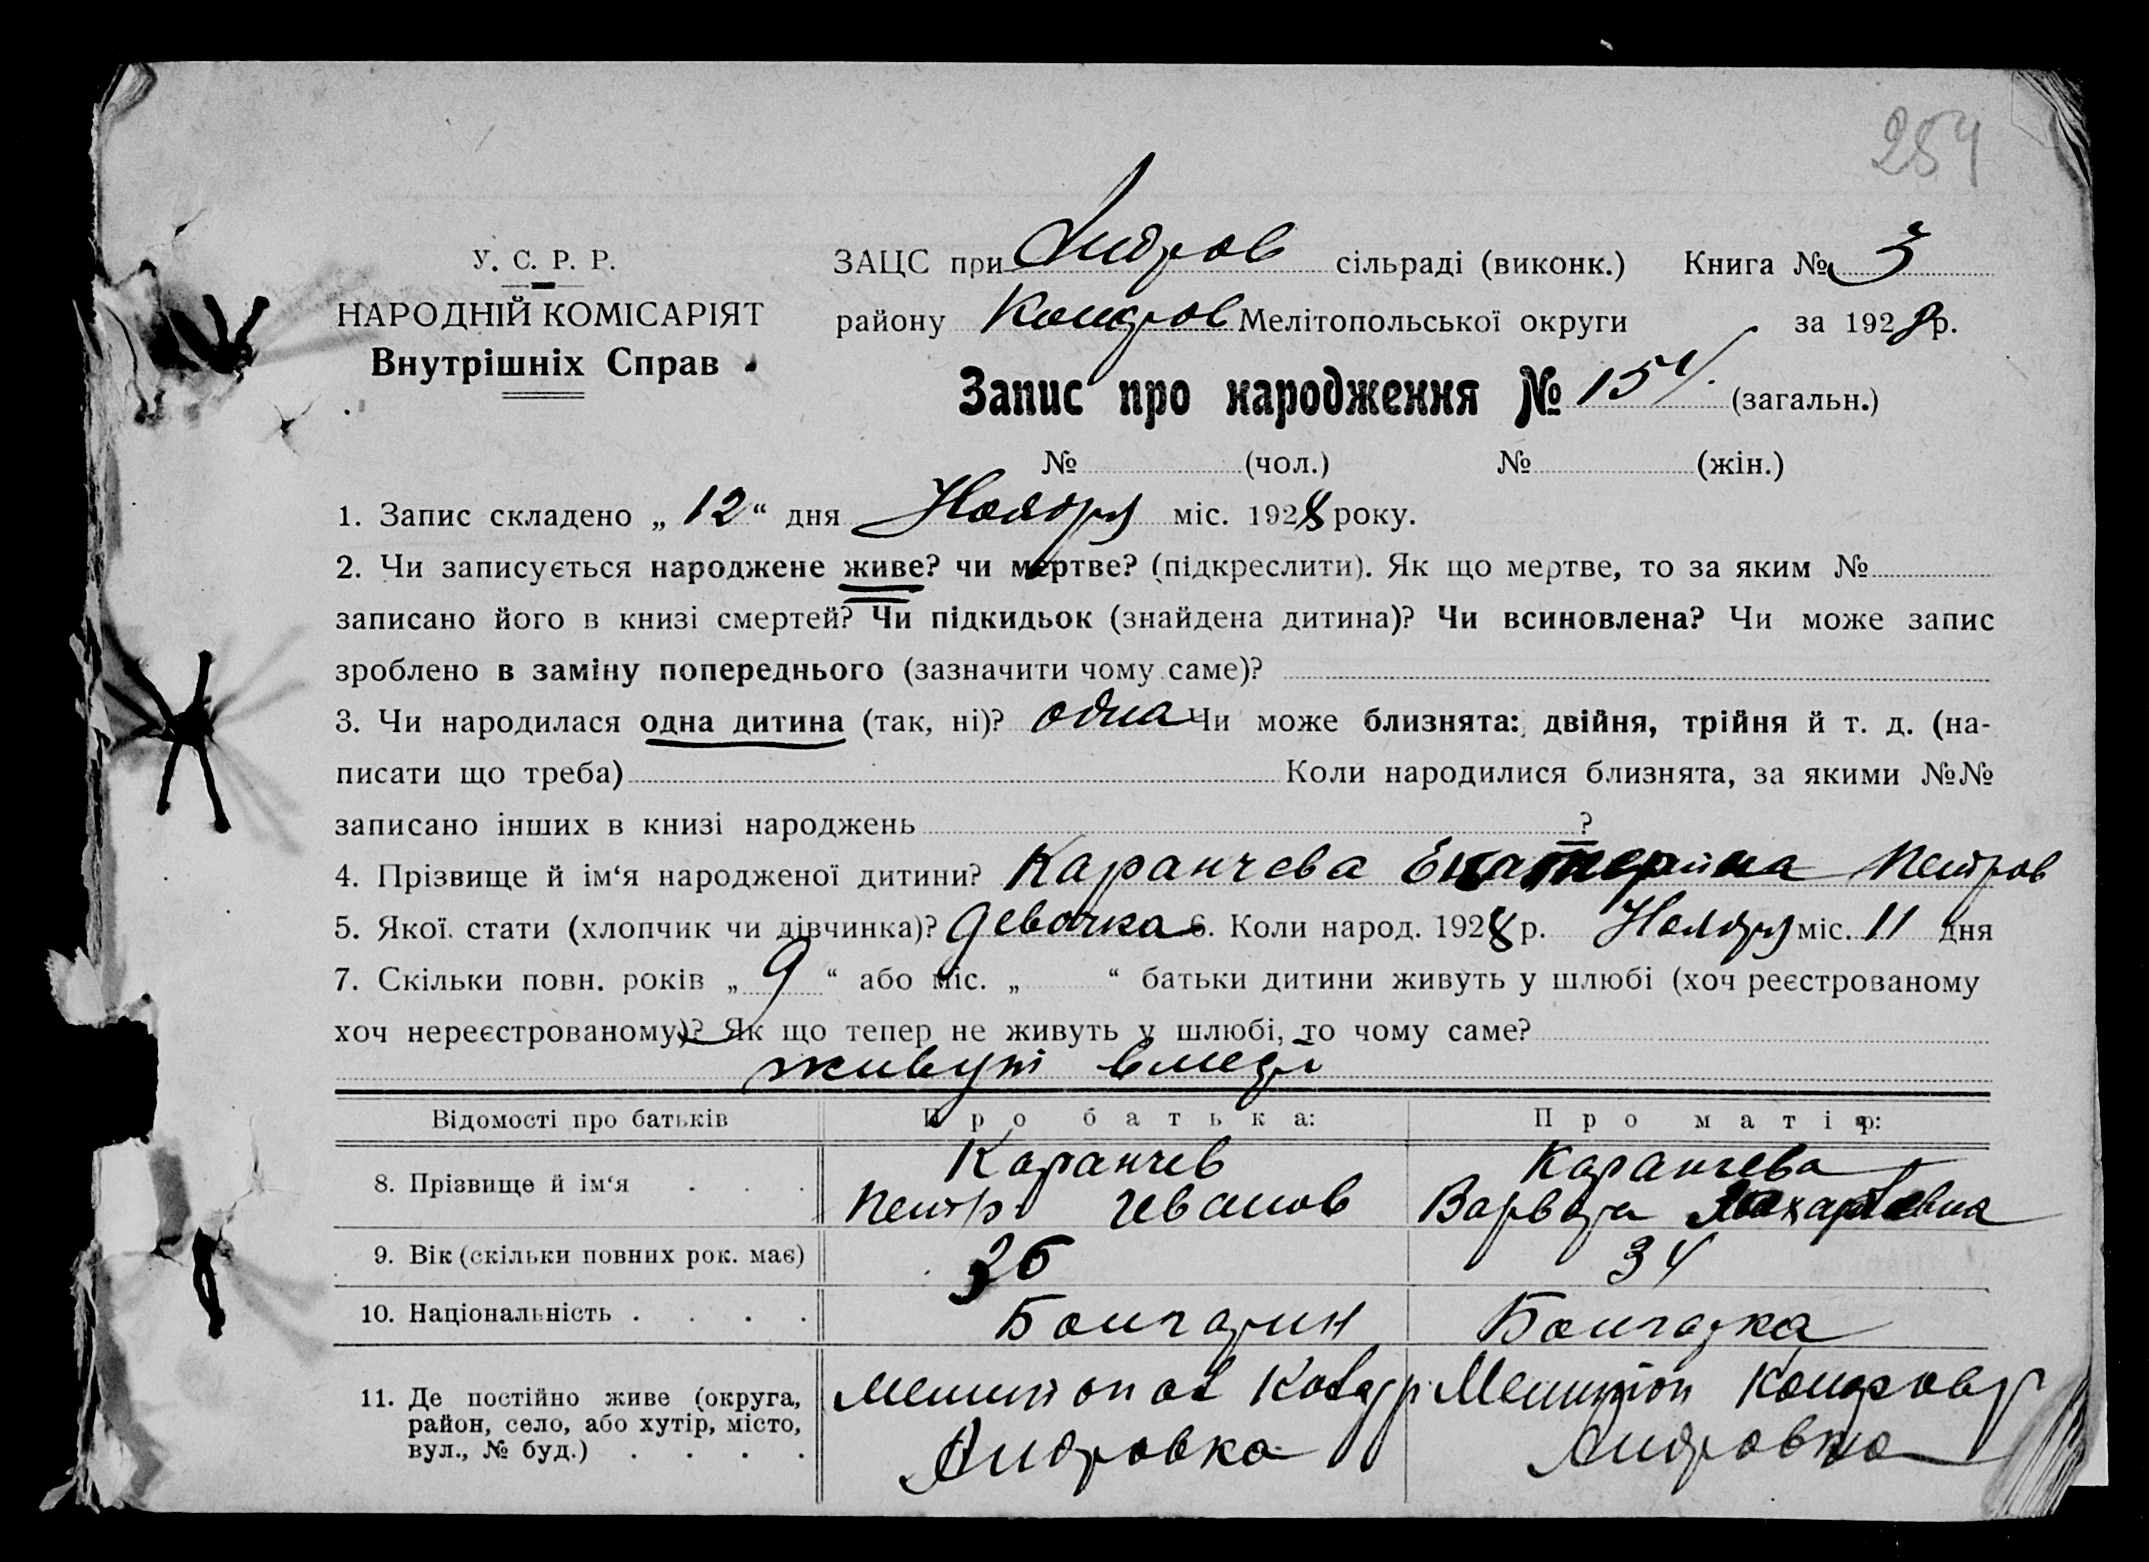 254
У. С. Р. Р.
НАРОДНІЙ КОМІСАРІЯТ
Внутрішніх Справ
ЗАЦС при Андров сільраді (виконк.) Книга № 3
району Мелітопольської округи за 1928 р.
Запис про народження № 154 (загальн.)
№ (чол.) № (жін.)
1. Запис складено „ 12 “ дня Ноября міс. 1928 року.
2. Чи записується народжене живе? чи мертве? (підкреслити). Як що мертве, то за яким №
записано його в книзі смертей? Чи підкидьок (знайдена дитина)? Чи всиновлена? Чи може запис
зроблено в заміну попереднього (зазначити чому саме)?
3. Чи народилася одна дитина (так, ні)? одна Чи може близнята: двійня, трійня й т. д. (на-
писати що треба) Коли народилися близнята, за якими №№
записано інших в книзі народжень ?
4. Прізвище й ім‘я народженої дитини? Каранчева Екатерина Петров
5. Якої стати (хлопчик чи дівчинка)? девочка 6. Коли народ. 1928 р. Ноября міс. 11 дня
7. Скільки повн. років „ 9 “ або міс. „ “ батьки дитини живуть у шлюбі (хоч реєстрованому
хоч нереєстрованому)? Як що тепер не живуть у шлюбі, то чому саме?
живут
Відомості про батьків Про батька: Про матір:
8. Прізвище й ім‘я . . . Каранчев Каранчева
Петр Иванов Варвара Захаровна
9. Вік (скільки повних рок. має) 36 34
10. Національність . . . . Болгарин Болгарка
11. Де постійно живе (округа,
район, село, або хутір, місто,
вул., № буд.) . . . .
Мелитопол Мелитоп
Андровка Андровка